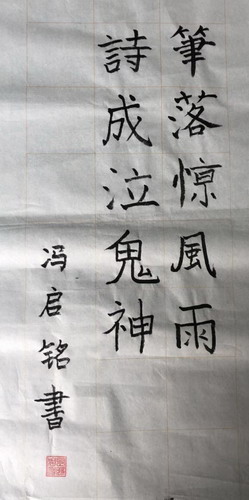 筆落惊風雨
詩成泣鬼神
冯启铭書